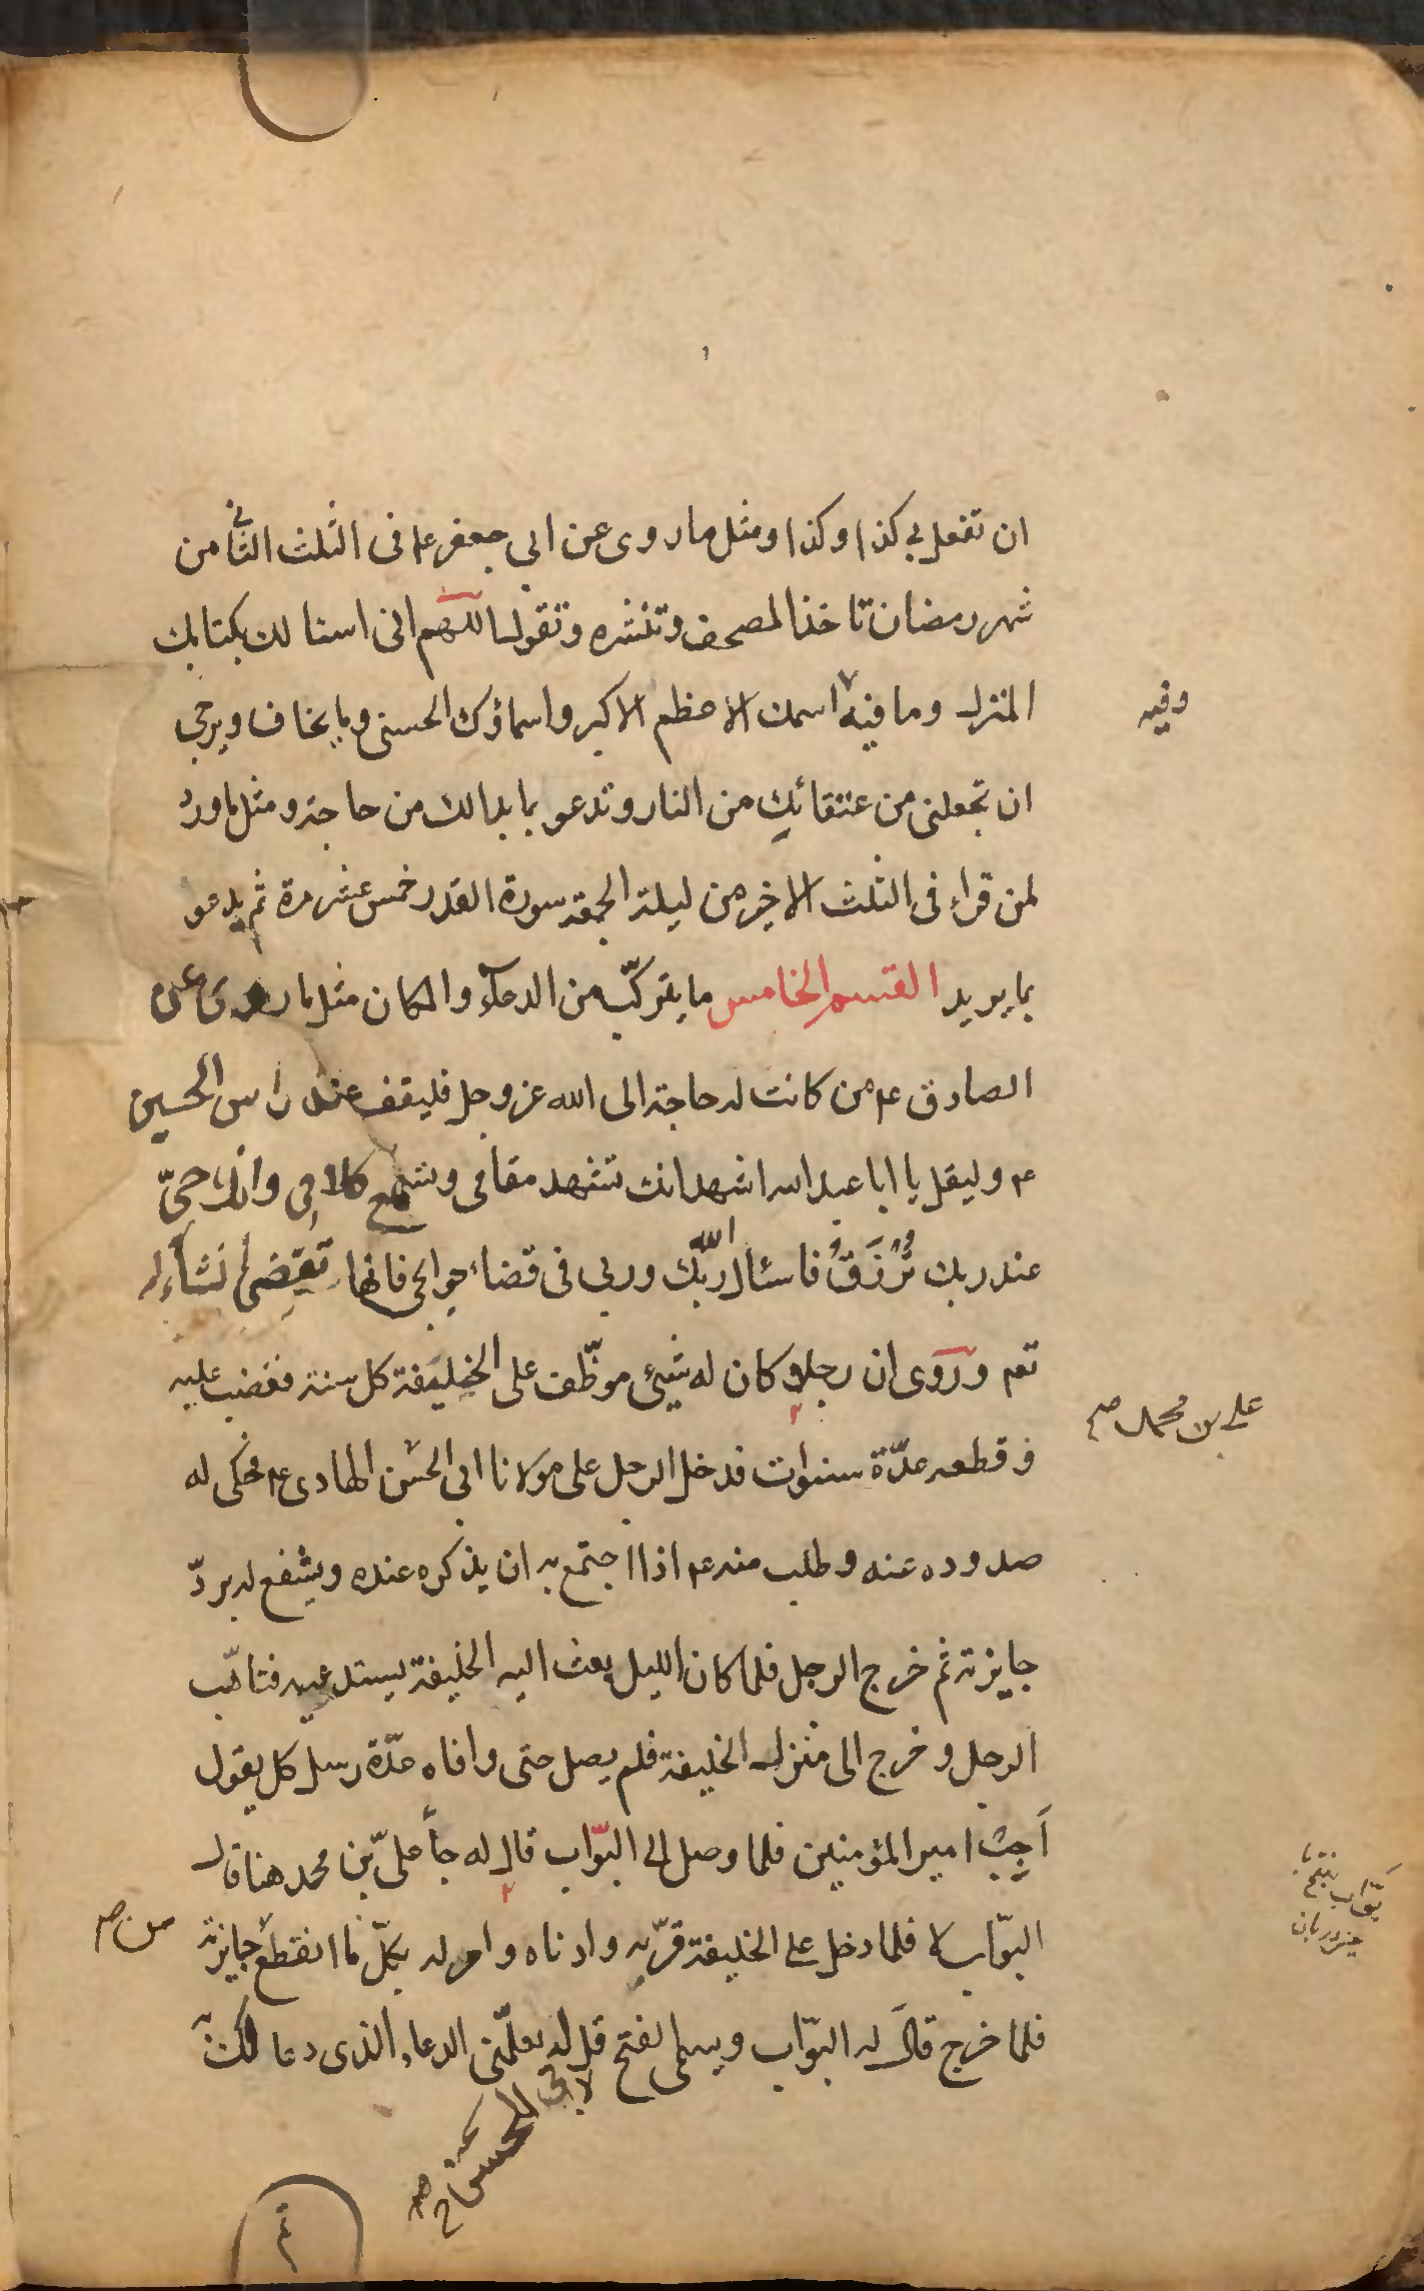 ان تفعل بی كذا وكذا ومثل ما روی عن ابی جعفر ع فی الثلث الثانی من
شهر رمضان تاخذ المصحف وتنشره وتقول اللهم انی اسئالك بكتابك
المنزل وما فيه اسمك الاعظم الاكبر واسماؤك الحسنی وما يخاف ويرجی
وفيه
ان تجعلنی من عتقائك من النار وتدعو بما بدالك من حاجة ومثل ما ورد
لمن قراء فی الثلث الاخير من ليلة الجمعة سورة القدر خمس عشر مرة ثم يدعو
بما يريد القسم الخامس ما يتركّب من الدعآء والمكان مثل ما روی عن
الصادق ع من كانت له حاجة الی الله عز وجل فليقف عند راس الحسين
ع وليقل يا ابا عبد الله اشهد انك تشهد مقامی وتسمع كلامی وانك حیّ
عند ربك تُرْزَقُ فاسئال الله ربّك وربی فی قضاء حوائجی فانها تُقْضی انشاء الله
تعم وروی ان رجلا كان له شیئ موظّف علی الخليفة كل سنة فغضب عليه
علی بن محمد صح
و قطعه عدّة سنوات فدخل الرجل علی مولانا ابی الحسن الهادی ع فحكی له
صدوده عنه وطلب منه ع اذا اجتمع به ان يذكره عنده ويشفع له بردّ
جايزته ثم خرج الرجل فلما كان الليل بعث اليه الخليفة يستدعيه فتاهّب
الرجل وخرج الی منزل الخليفة فلم يصل حتی وافاه عدّة رسل كل يقول
اَجِبْ امير المؤمنين فلما وصل الی البوّاب قال له جاء علیّ بن محمد هنا قال
البوّاب لا فلما دخل علی الخليفة قرّبه وادناه وامر له بكلّ ما انقطع جايزته
من صح
فلما خرج قال له البوّاب ويسمی الفتح قل له يعلّمنی الدعاء الذی دعا لك
لابی الحسن ع صح